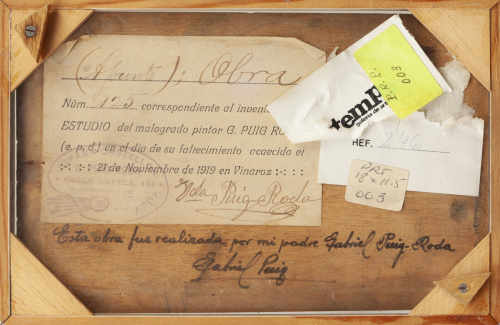 (Apunte); Obra
Núm. 123 correspondiente al inven
ESTUDIO del malogrado pintor G. PUIG RO
(e. p. d.) en el día de su fallecimiento acaecido el
21 de Noviembre de 1919 en Vinaroz
Vda Puig Roda
+emp
galería de art
P.R.P.
003
REF. 246
PRT
18 x 11.5
003
Esta obra fue realizada por mi padre Gabriel Puig-Roda
Gabriel Puig